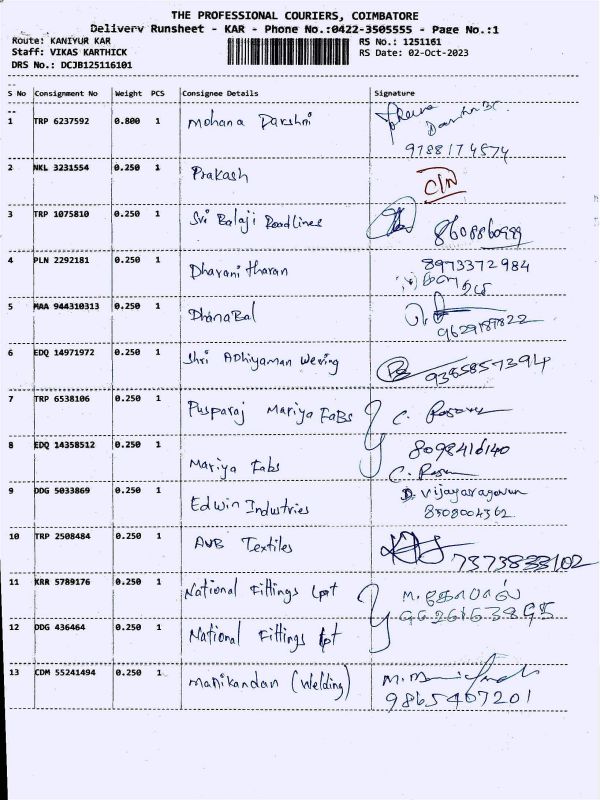 THE PROFESSIONAL COURIERS, COIMBATORE
Delivery Runsheet - KAR - Phone No.:0422-3505555 - Page No.:1
Route: KANIYUR KAR RS No.: 1251161
Staff: VIKAS KARTHICK RS Date: 02-Oct-2023
DRS No.: DCJB125116101
S No Consignment No Weight PCS Consignee Details Signature
1 TRP 6237592 0.800 1 Mohana Darshni
9788174574
2 NKL 3231554 0.250 1 Prakash
3 TRP 1075810 0.250 1 Sri Balaji Roadlines 8608860999
4 PLN 2292181 0.250 1 Dharani tharan 8973372984
5 MAA 944310313 0.250 1 DhanaBal 9629187822
6 EDQ 14971972 0.250 1 Shri ADhiyaman Weving 9385857394
7 TRP 6538106 0.250 1 Pusparaj Mariya Fabs C.
8 EDQ 14358512 0.250 1 Mariya Fabs 8098416140
C.
9 DDG 5033869 0.250 1 Edwin Industries D. Vijayaragavan
8508004362
10 TRP 2508484 0.250 1 AVB Textiles 7373833102
11 KRR 5789176 0.250 1 National Fittings Lpt M. கோபால்
12 DDG 436464 0.250 1 National Fittings Lpt
13 CDM 55241494 0.250 1 Manikandan (Welding)
9865407201